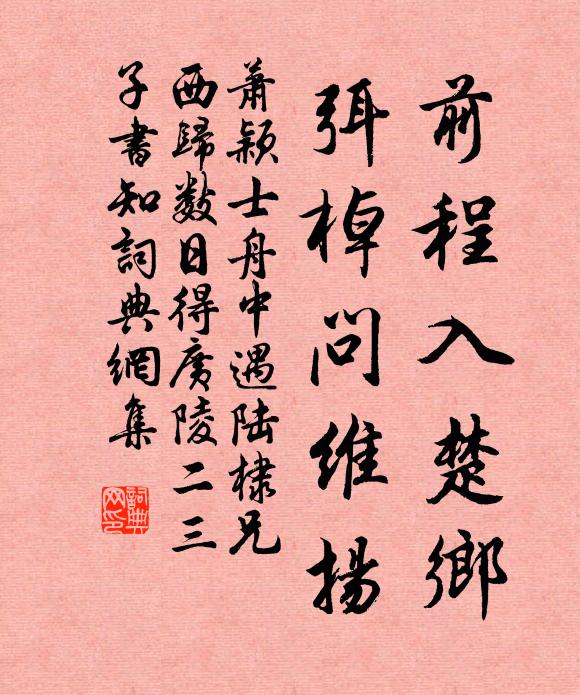 前程入楚鄉
弭棹問維揚
蕭穎士舟中遇陸棣兄
西歸數日得廣陵二三
子書知詞典網集
詞典
网印